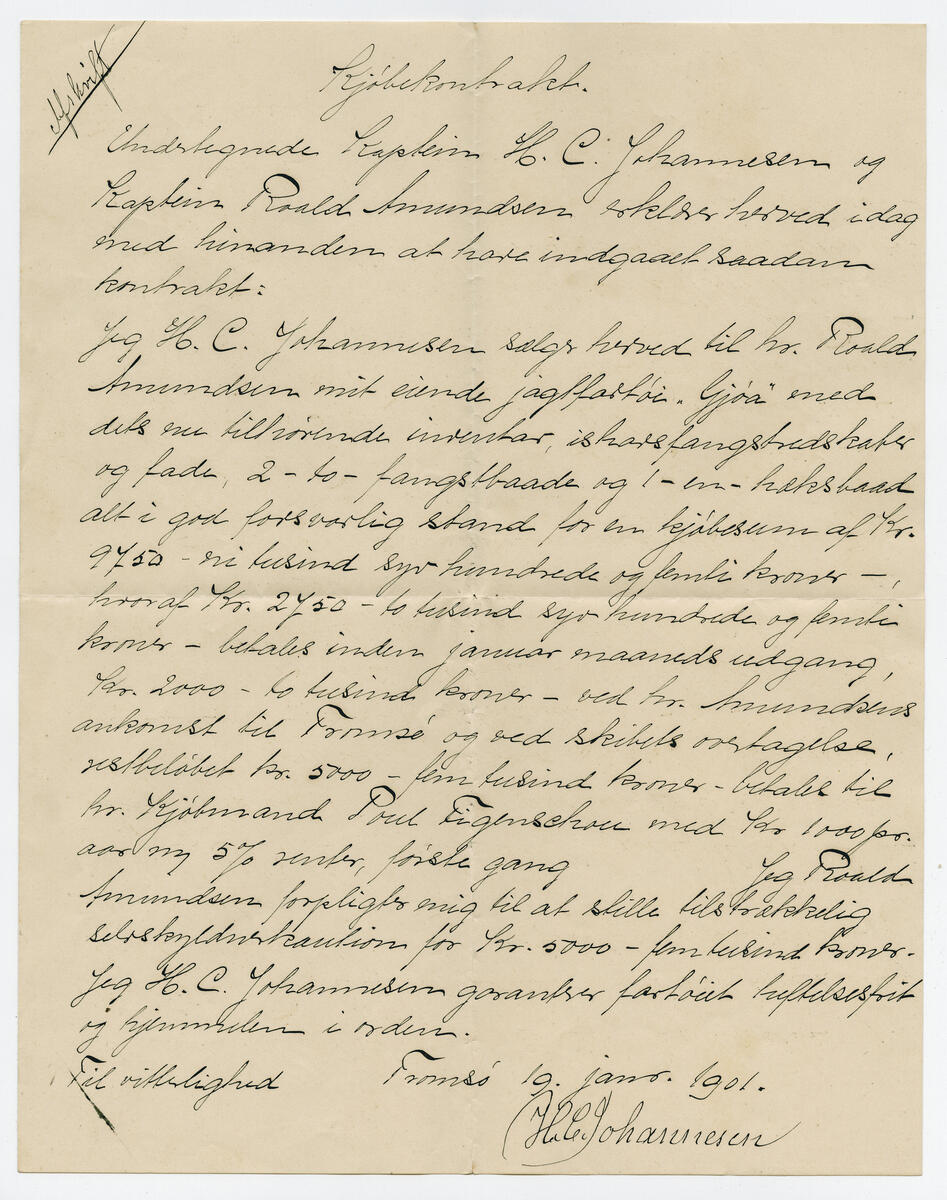 Afskrift
Kjöbekontrakt.
Undertegnede Kaptein H. C. Johannesen og
Kaptein Roald Amundsen erklærer herved idag
med hinanden at have indgaaet saadan
kontrakt:
Jeg H. C. Johannesen sælger herved til hr. Roald
Amundsen mit eiende jagtfartöi „Gjöa" med
dets nu tilhörende inventar, ishavsfangstredskaber
og fade, 2 - to - fangstbaade og 1 - en - hæksbaad
alt i god forsvarlig stand for en kjöbesum af Kr.
9750 - ni tusind syv hundrede og femti kroner -,
hvoraf Kr. 2750 - to tusind syv hundrede og femti
kroner - betales inden januar maaneds udgang,
Kr. 2000 - to tusind kroner - ved hr. Amundsens
ankomst til Tromsö og ved skibets overtagelse,
restbelöbet kr. 5000 - fem tusind kroner - betales til
hr. Kjöbmand Poul Figenschou med Kr 1000 pr.
aar m/ 5% renter, förste gang Jeg Roald
Amundsen forpligter mig til at stille tilstrækkelig
selvskyldnerkaution for Kr. 5000 - fem tusind kroner.
Jeg H. C. Johannesen garanterer fartöiet heftelsesfrit
og hjemmelen i orden.
Til vitterlighed Tromsö 19. janr. 1901.
H. C. Johannesen